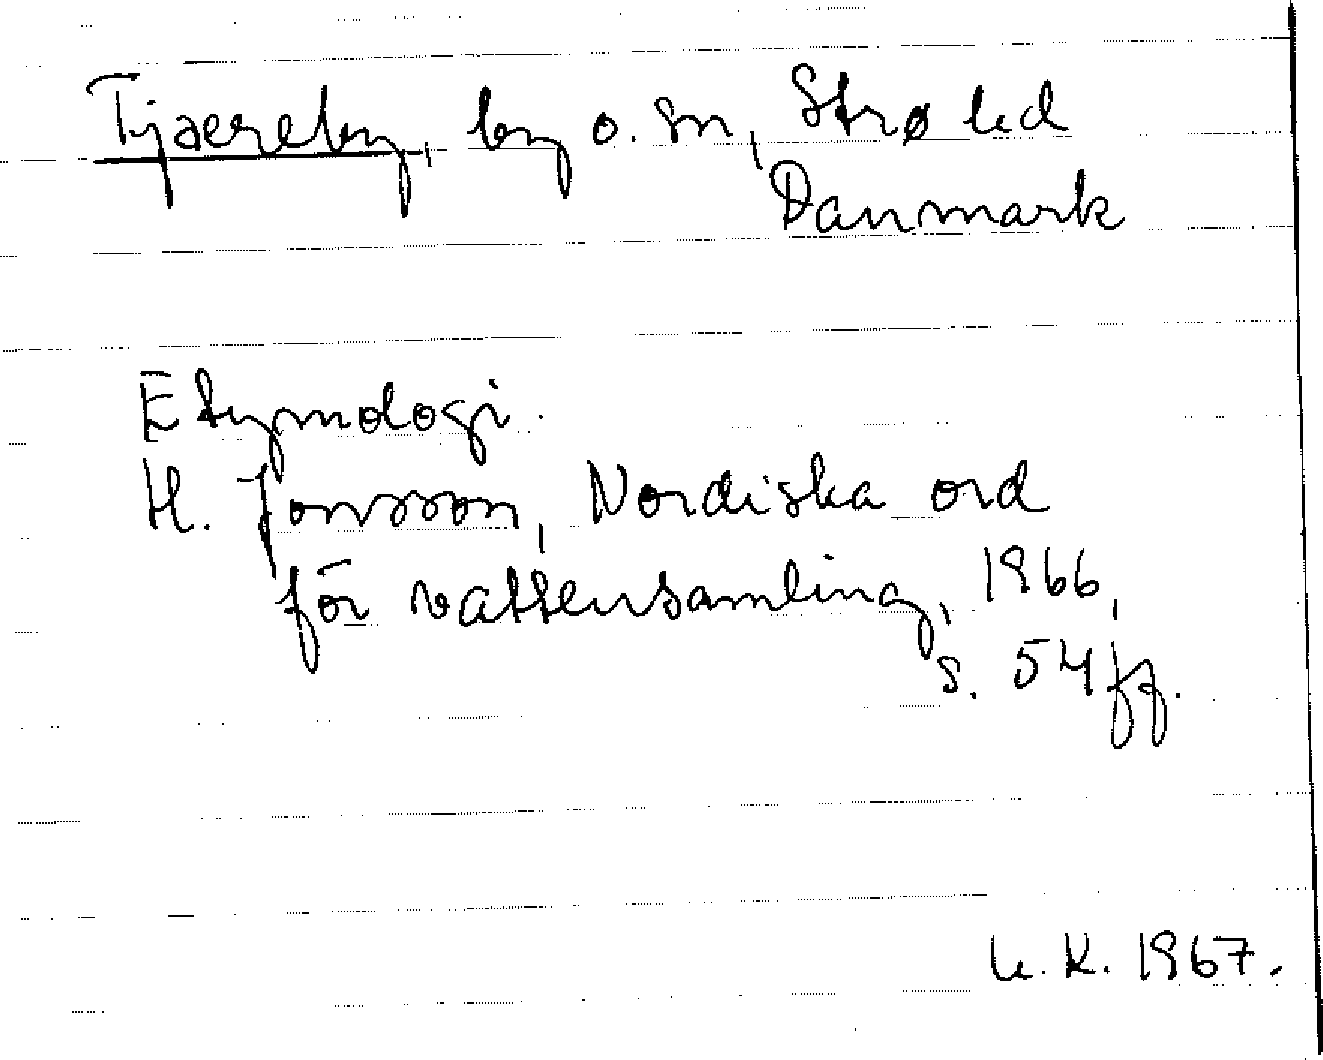 Tjaereby, by o. sn, Strø hd
Danmark
Etymologi.
H. Jonsson, Nordiska ord
för vattensamling, 1966,
s. 54 ff.
U. K. 1967.